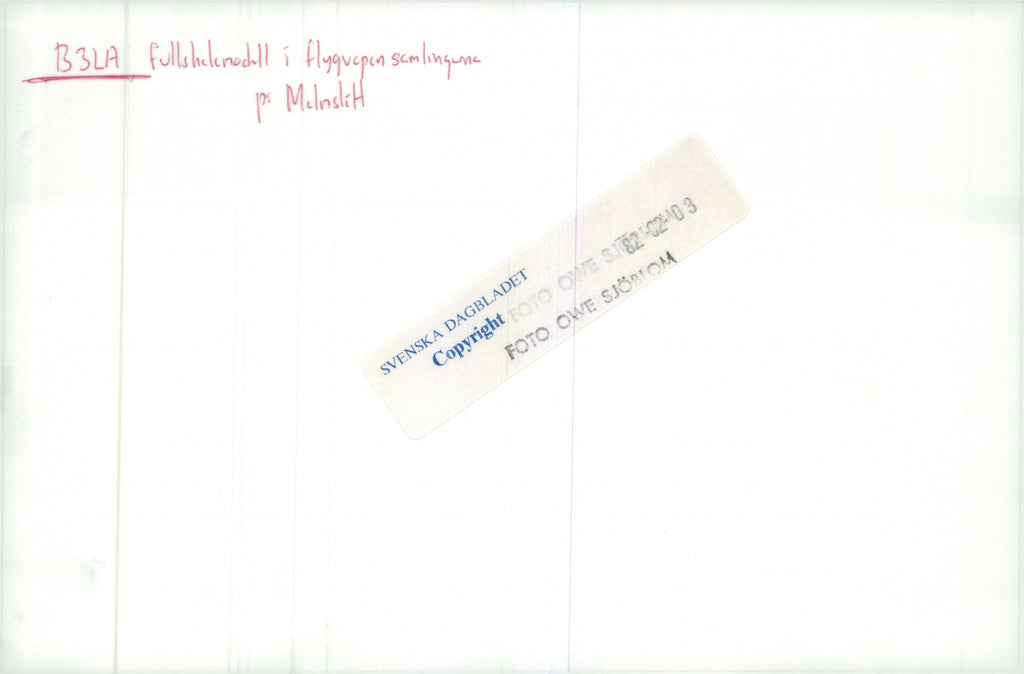 B3LA fullskalemodell i flygvapensamlingarna
på Malmslätt
SVENSKA DAGBLADET
Copyright
FOTO OWE SJÖ
82-02-10 3
FOTO OWE SJÖBLOM